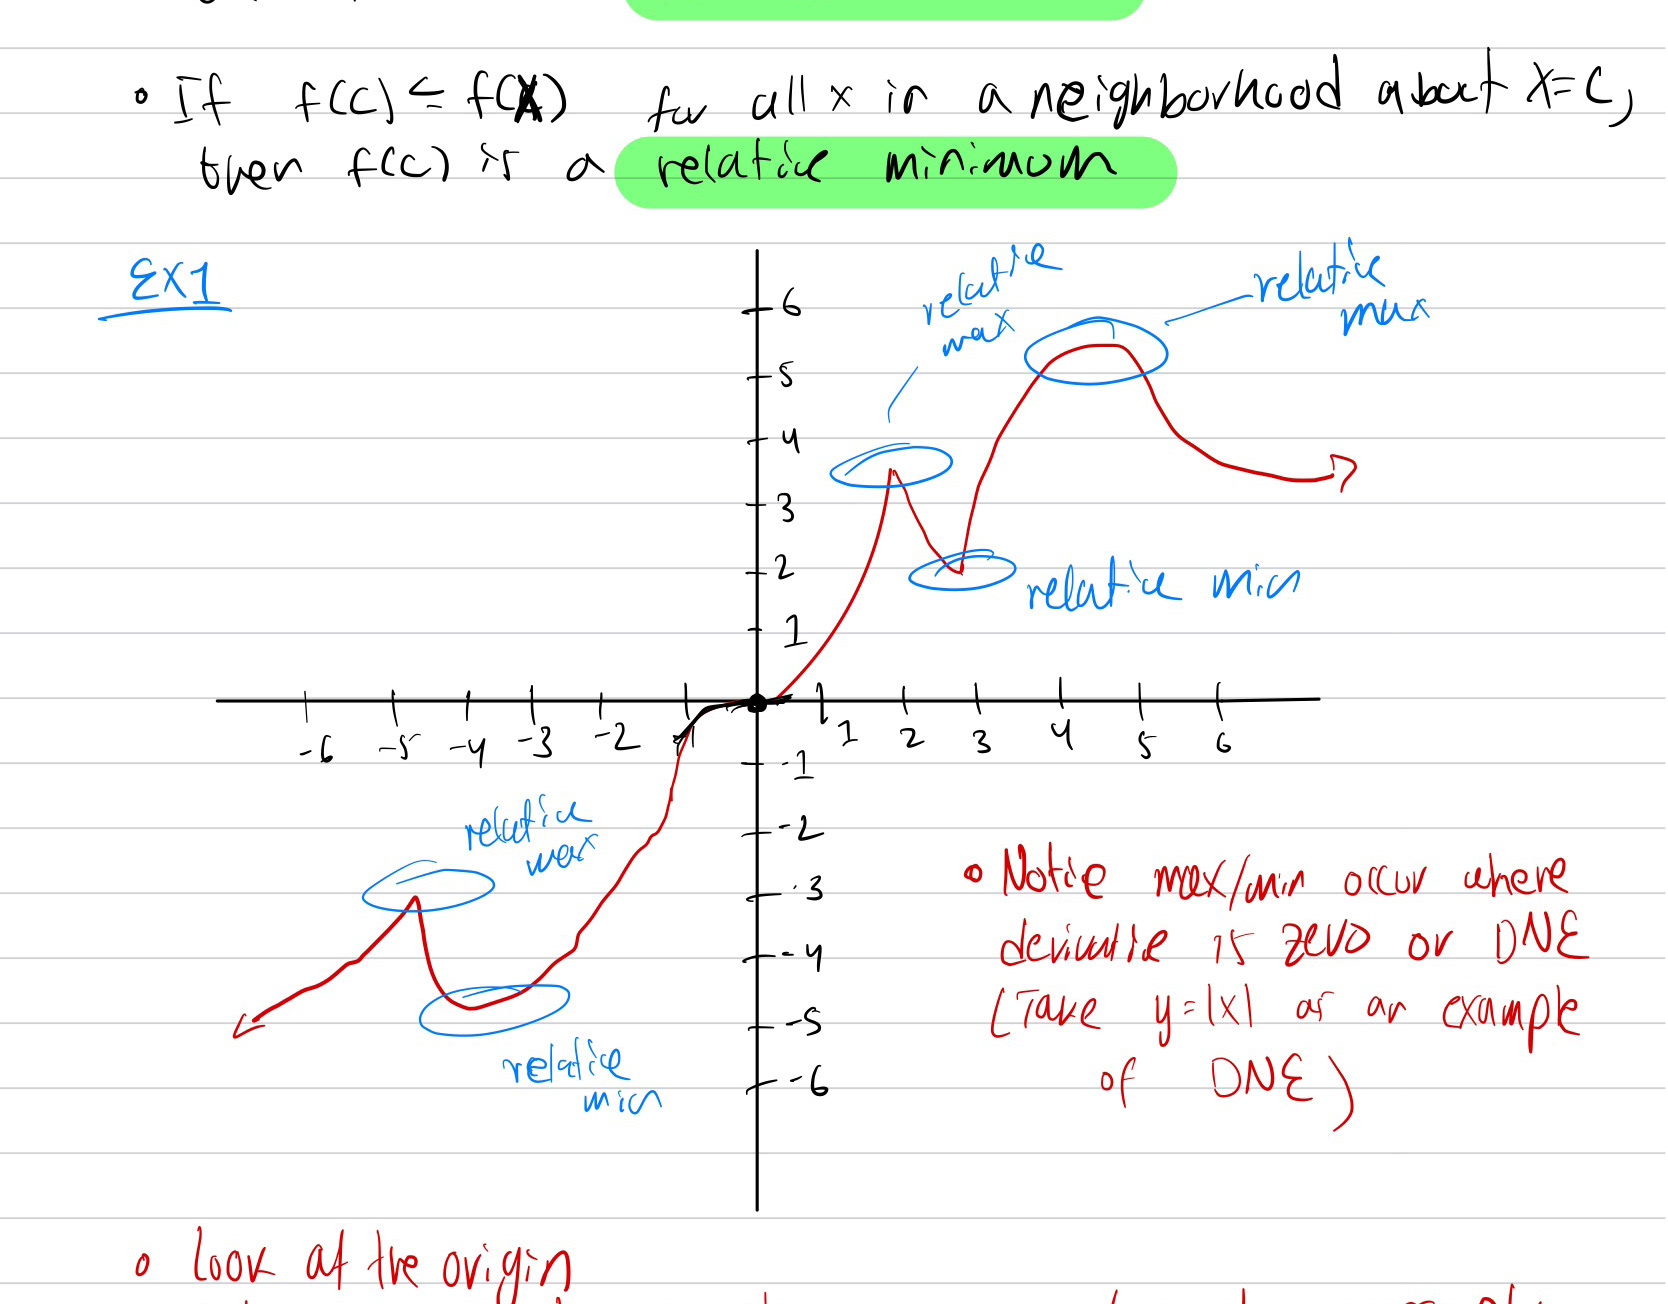 • If f(c) ≤ f(x) for all x in a neighborhood about x=c,
then f(c) is a relative minimum
Ex1
relative
max
relative
max
6
5
4
3
2
1
relative min
-6 -5 -4 -3 -2 -1 1 2 3 4 5 6
-1
-2
-3
-4
-5
-6
relative
max
relative
min
• Notice max/min occur where
derivative is zero or DNE
(Take y=|x| as an example
of DNE)
• Look at the origin